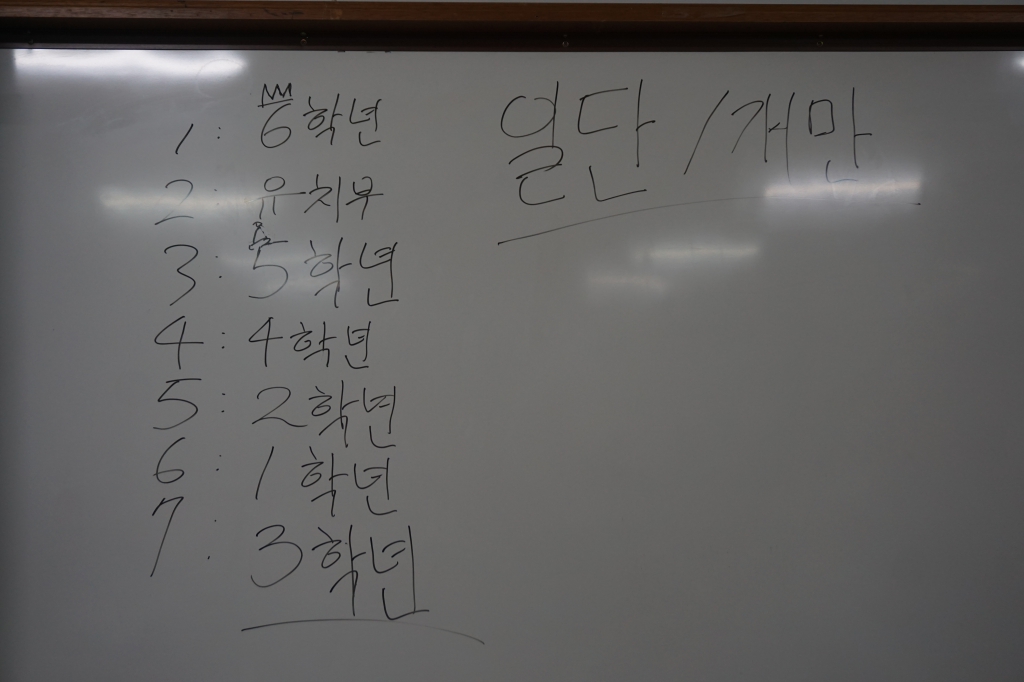 1 : 6학년
2 : 유치부
3 : 5학년
4 : 4학년
5 : 2학년
6 : 1학년
7 : 3학년
일단 1개만